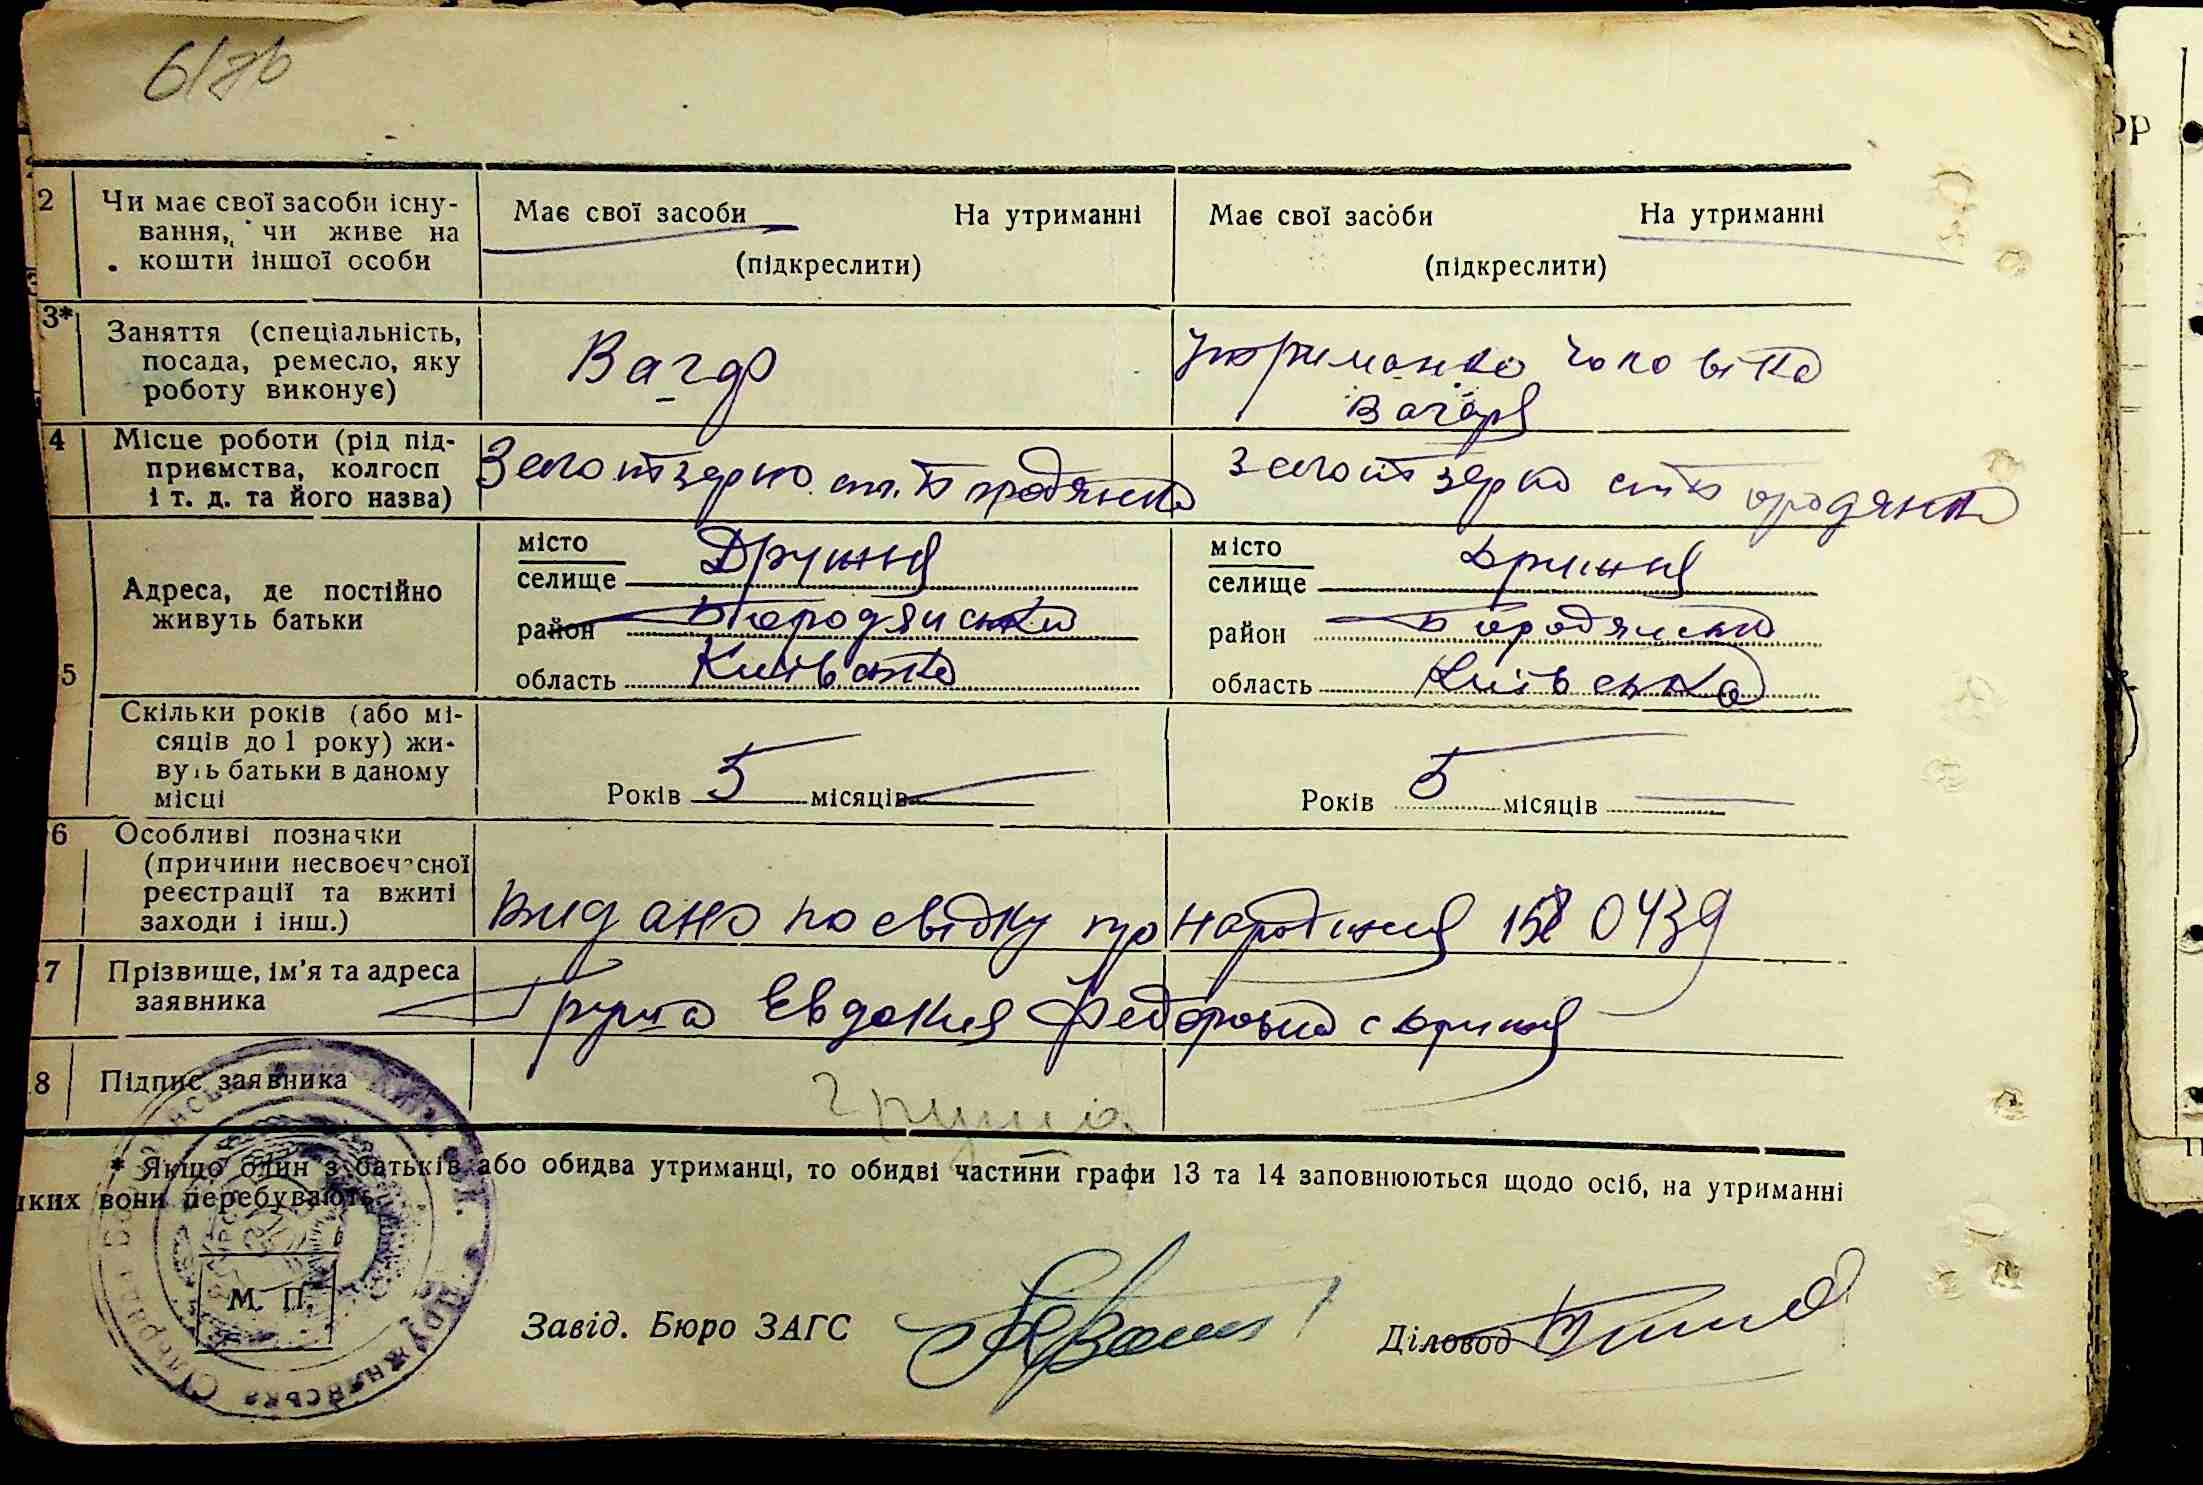 2 Чи має свої засоби існу-
вання, чи живе на
кошти іншої особи
Має свої засоби На утриманні
(підкреслити)
Має свої засоби На утриманні
(підкреслити)
3* Заняття (спеціальність,
посада, ремесло, яку
роботу виконує)
Вагар
Утриманка чоловіка
Вагаря
4 Місце роботи (рід під-
приємства, колгосп
і т. д. та його назва)
Заготзерно ст. Бородянка
Заготзерно ст Бородянка
5 Адреса, де постійно
живуть батьки
місто
селище Дружня
район Бородянський
область Київська
місто
селище Дружня
район Бородянський
область Київська
Скільки років (або мі-
сяців до 1 року) жи-
вуть батьки в даному
місці
Років 5 місяців
Років 5 місяців
6 Особливі позначки
(причини несвоєчасної
реєстрації та вжиті
заходи і інш.)
Видано посвідку про народження 0439
17 Прізвище, ім'я та адреса
заявника
Груша Евдокия Федоровна с Дружня
18 Підпис заявника
Груша
* Якщо один з батьків або обидва утриманці, то обидві частини графи 13 та 14 заповнюються щодо осіб, на утриманні
яких вони перебувають.
М. П.
Завід. Бюро ЗАГС
Діловод
ДРУЖНЯНСЬКА